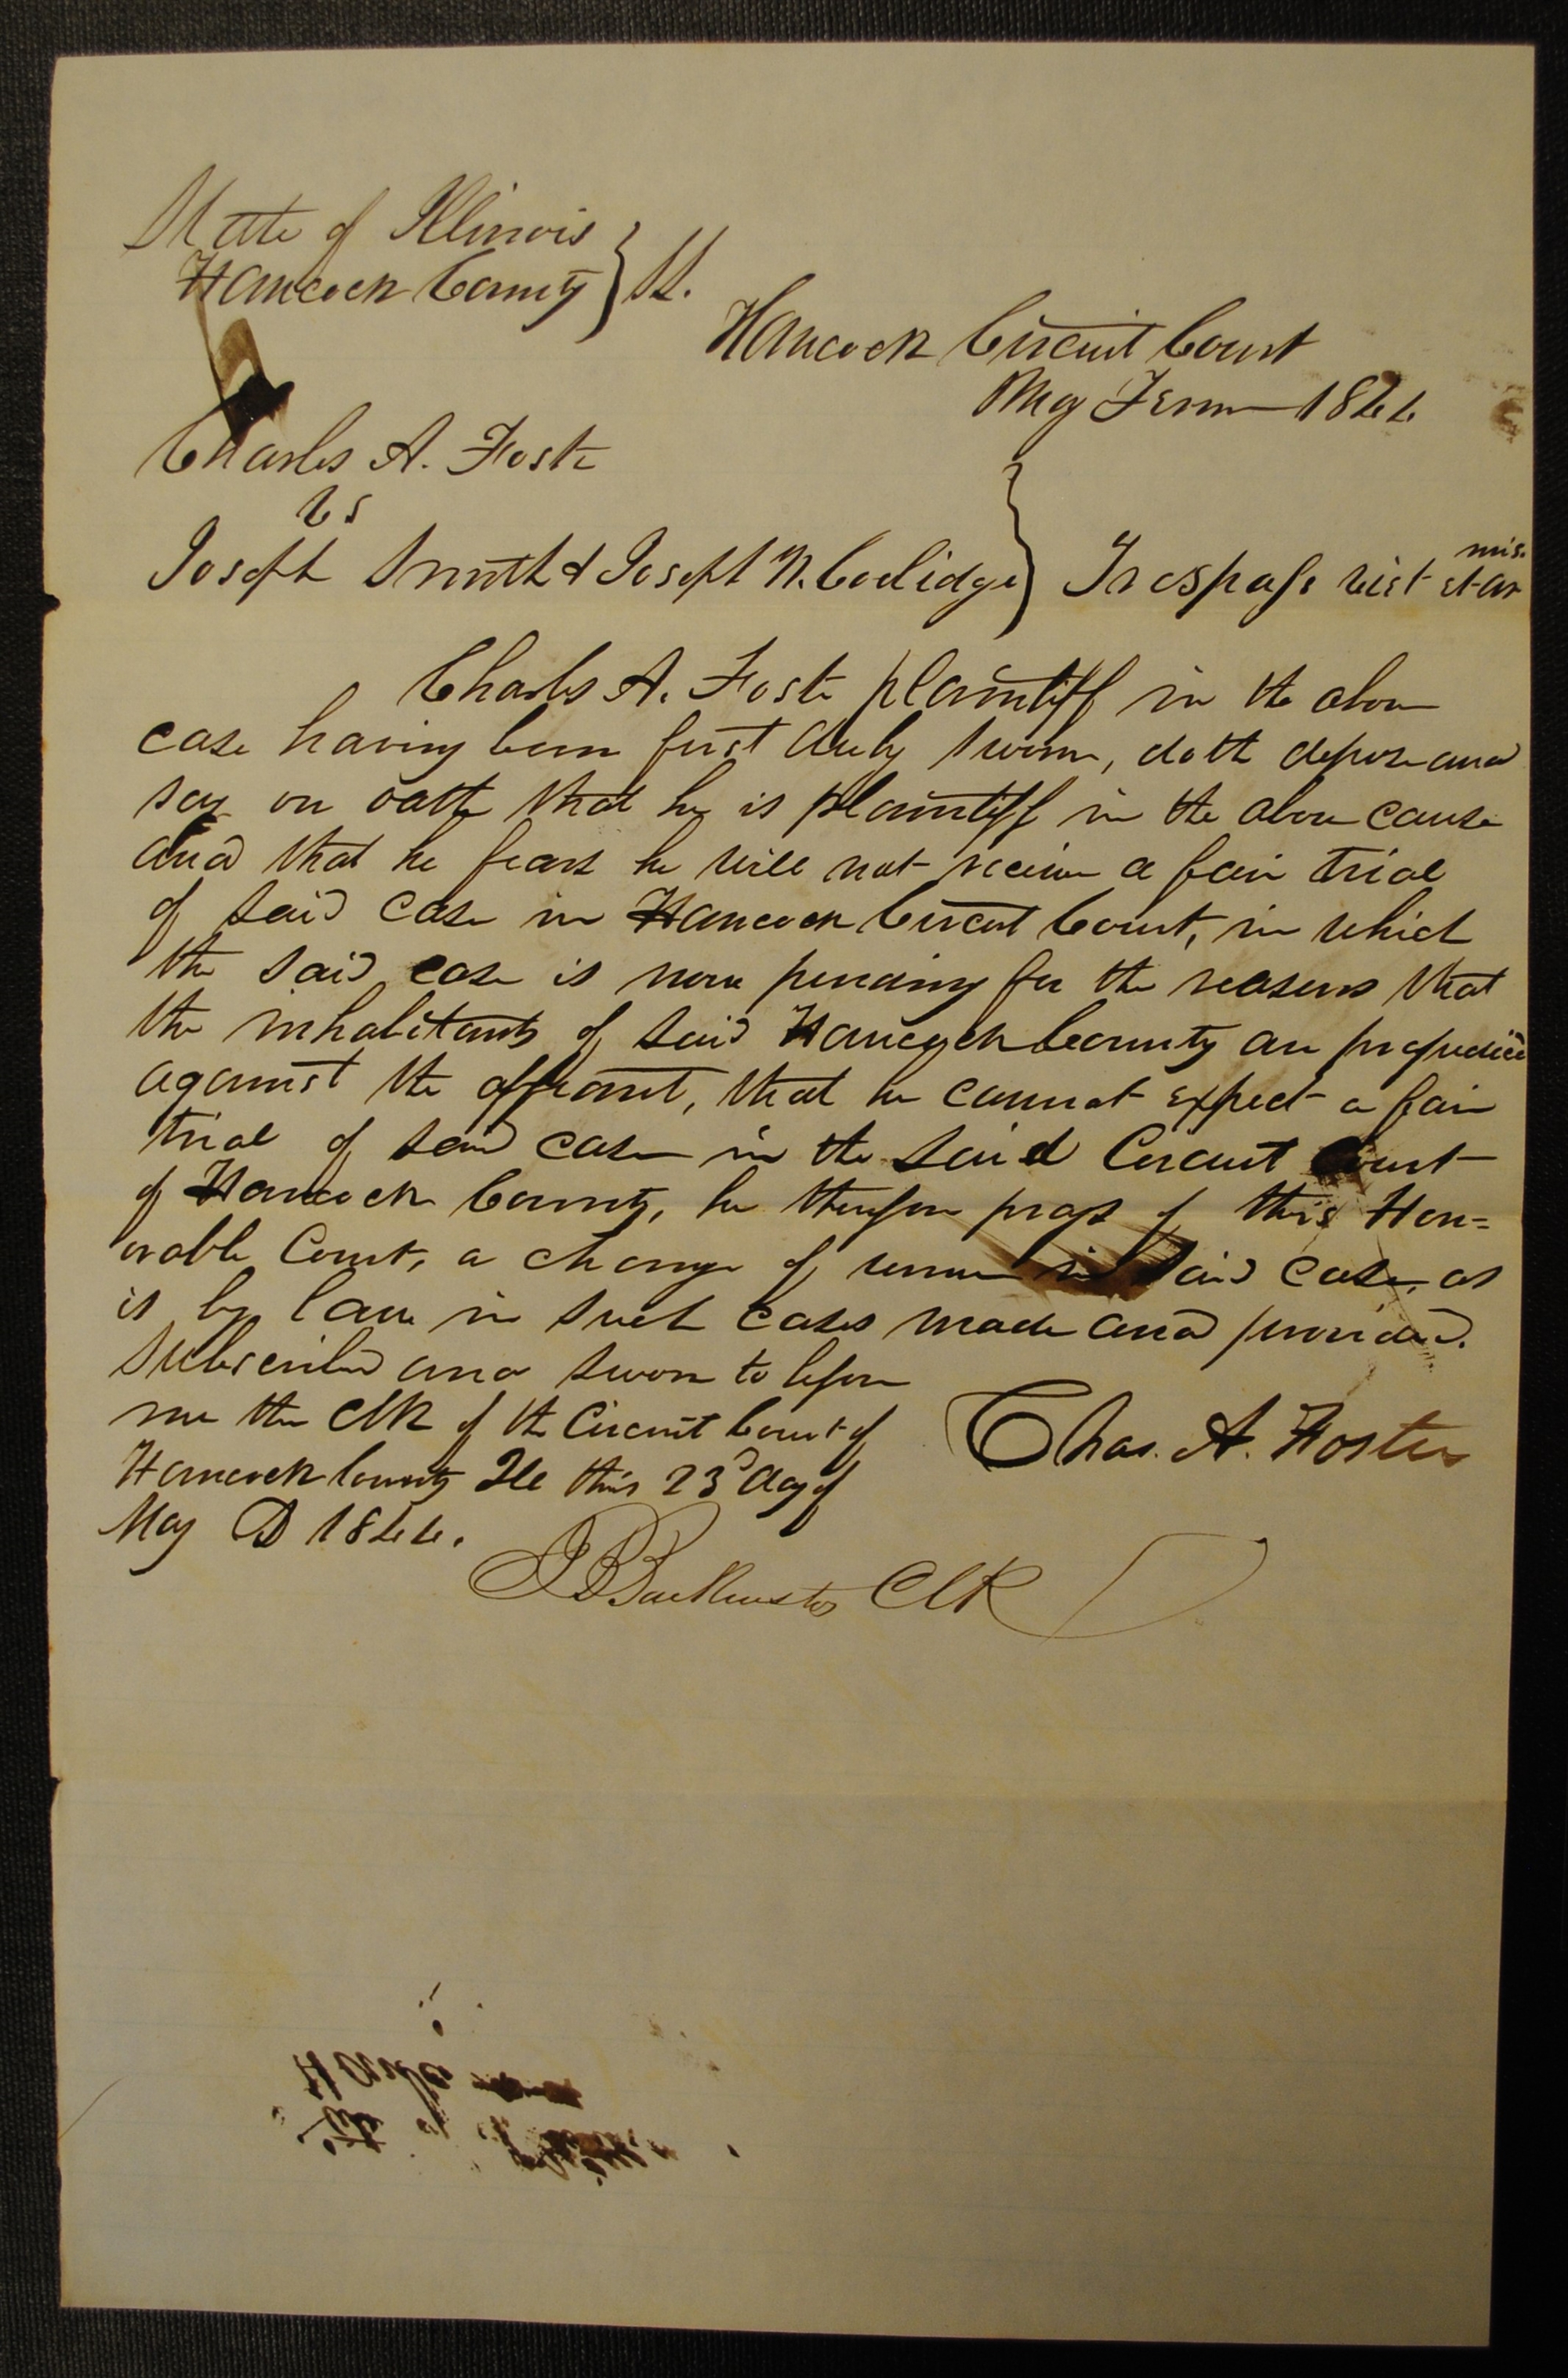 State of Illinois
Hancock County } SS.
Hancock Circuit Court
May Term 1844
Charles A. Foster
vs
Joseph Smith & Joseph W. Coolidge } Trespass vi et armis.
Charles A. Foster plaintiff in the above
case having been first duly sworn, doth depose and
say on oath that he is plaintiff in the above cause
and that he fears he will not receive a fair trial
of said case in Hancock Circuit Court, in which
the said case is now pending for the reasons that
the inhabitants of said Hancock County are prejudiced
against the affiant, that he cannot expect a fair
trial of said case in the said Circuit Court
of Hancock County, he therefore prays of this Hon=
orable Court, a change of venue in said case, as
is by law in such cases made and provided.
Subscribed and sworn to before
me the Clk of the Circuit Court of
Hancock County Ill this 23d day of
May AD 1844.
Chas. A. Foster
J B Backenstos Clk